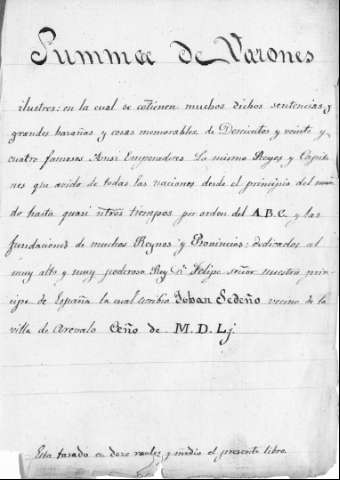 Summa de Varones
ilustres: en la cual se cõtienen muchos dichos sentencias, y
grandes hazañas y cosas memorables de Doscientos y veinte y
cuatro famosos. Ansi Emperadores Co mismo Reyes y Capita
nes que avido de todas las naciones desde el principio del mũn
do hasta quasi ntrõs tiempos por orden del A.B.C. y las
fundaciones de muchos Reynos y Provincias: dedicados al
muy alto y muy poderoso Rey Dⁿ Felipe señor nuestro prin
cipe de España la cual escribio Johan Sedeño vecino de la
villa de Arevalo Año de M.D.Lj.
Esta tasado en doze reales y medio el presente libro.